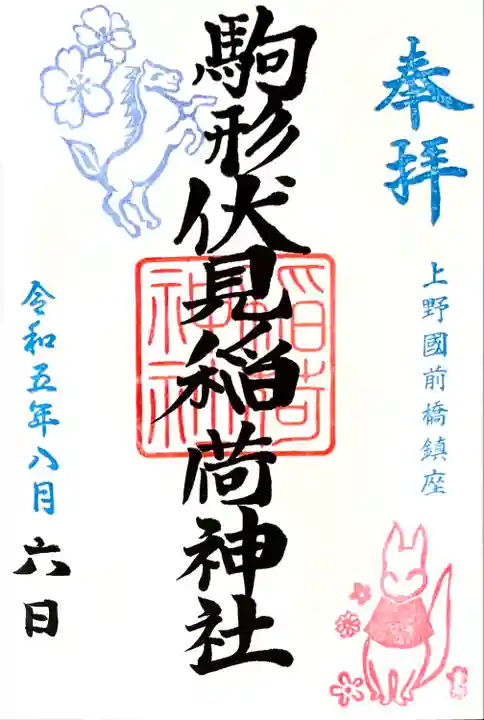 奉拝
上野國前橋鎮座
駒形伏見稲荷神社
稲荷
神社
令和五年八月六日